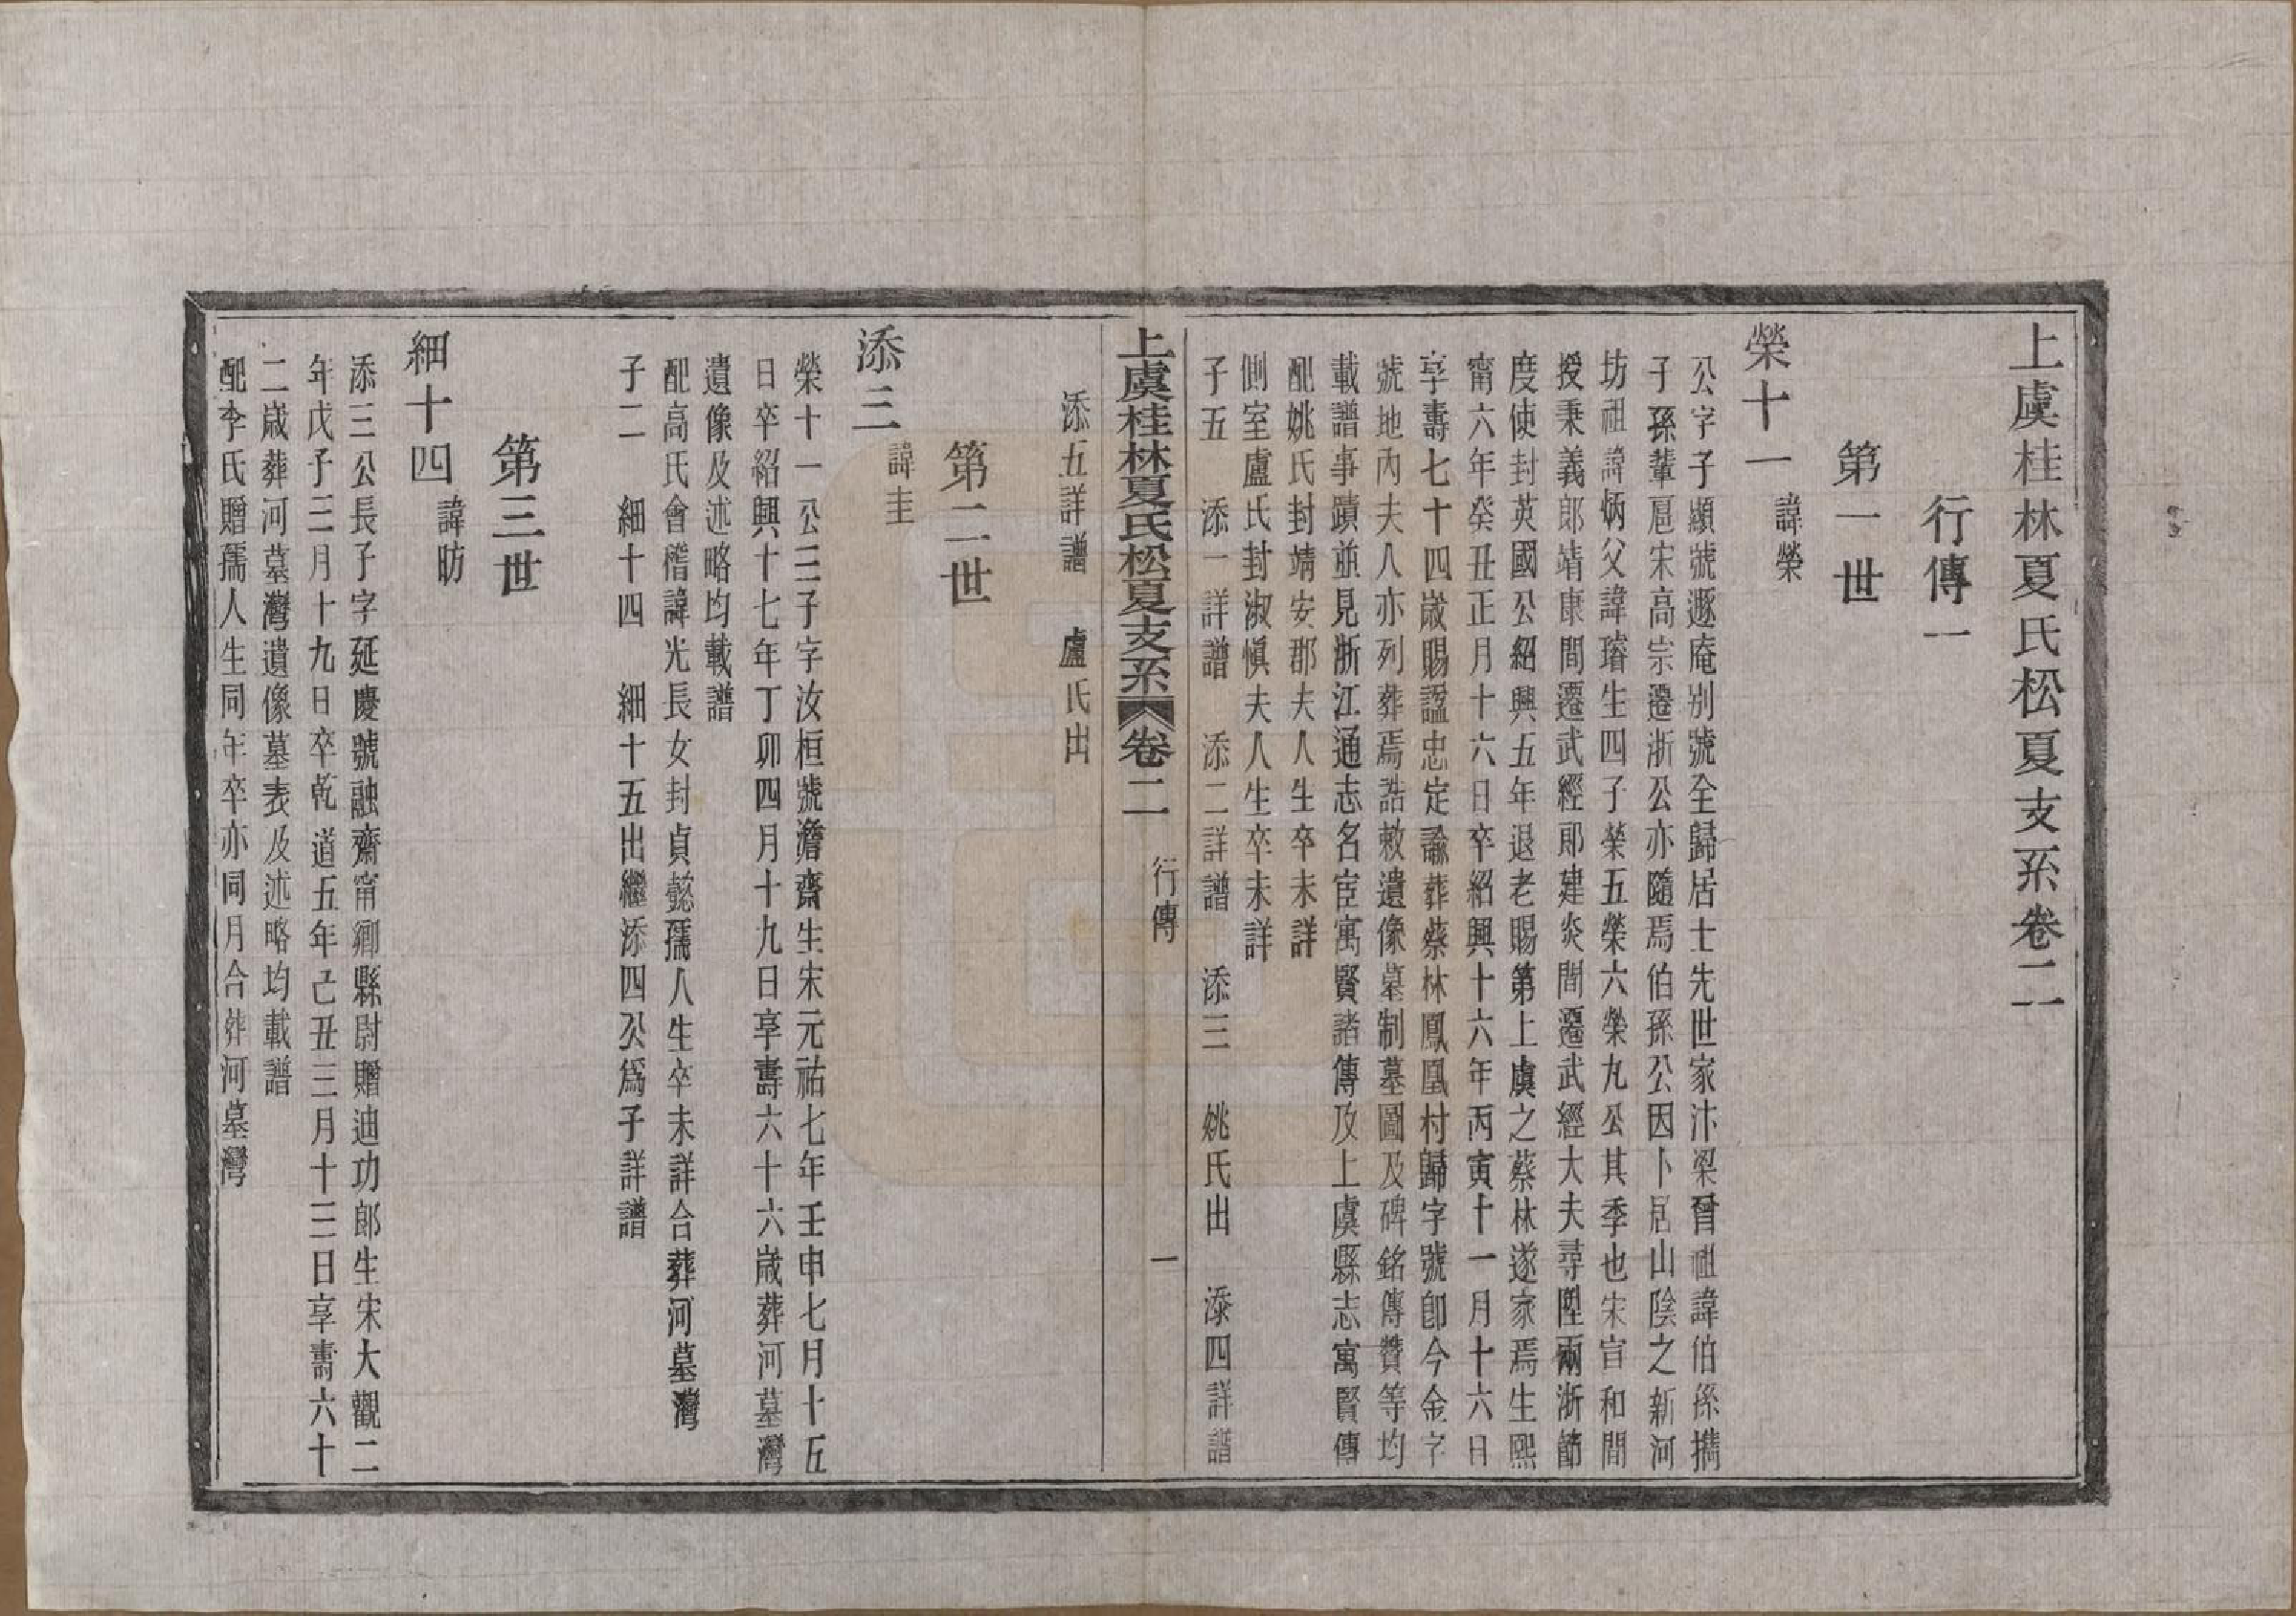 上虞桂林夏氏松夏支系卷二
行傳一
第一世
榮十一 諱榮
公字子顯號遯庵別號全歸居士先世家汴梁曾祖諱伯孫攜
子孫輩扈宋高宗遷浙公亦隨焉伯孫公因卜居山陰之新河
坊祖諱炳父諱璿生四子榮五榮六榮九公其季也宋宣和間
授秉義郎靖康間遷武經郎建炎間遷武經大夫尋陞兩浙節
度使封英國公紹興五年退老賜第上虞之蔡林遂家焉生熙
甯六年癸丑正月十六日卒紹興十六年丙寅十一月十六日
享壽七十四歲賜謚忠定諭葬蔡林鳳凰村歸字號卽今金字
號地內夫人亦列葬焉誥敕遺像墓制墓圖及碑銘傳贊等均
載譜事蹟並見浙江通志名宦寓賢諸傳及上虞縣志寓賢傳
配姚氏封靖安郡夫人生卒未詳
側室盧氏封淑愼夫人生卒未詳
子五 添一詳譜 添二詳譜 添三 姚氏出 添四詳譜
上虞桂林夏氏松夏支系 卷二 行傳 一
添五詳譜 盧氏出
第二世
添三 諱圭
榮十一公三子字汝桓號澹齋生宋元祐七年壬申七月十五
日卒紹興十七年丁卯四月十九日享壽六十六歲葬河墓灣
遺像及述略均載譜
配高氏會稽諱光長女封貞懿孺人生卒未詳合葬河墓灣
子二 細十四 細十五出繼添四公爲子詳譜
第三世
細十四 諱昉
添三公長子字延慶號融齋甯鄉縣尉贈迪功郎生宋大觀二
年戊子三月十九日卒乾道五年己丑三月十三日享壽六十
二歲葬河墓灣遺像墓表及述略均載譜
配李氏贈孺人生同年卒亦同月合葬河墓灣